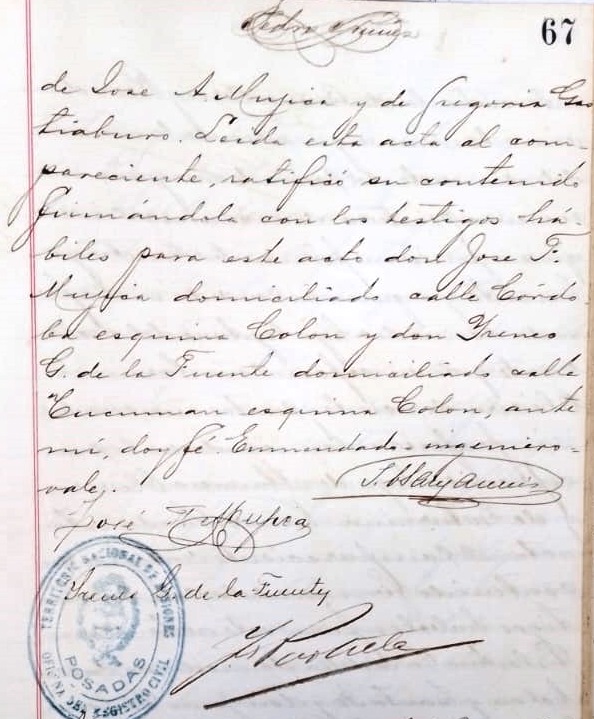 67
de Jose A. Mujica y de Gregoria Gas
tiaburo. Leida esta acta al com-
pareciente, ratificó su contenido
firmándola con los testigos há-
biles para este acto don Jose F.
Mujica domiciliado calle Córdo-
ba esquina Colon y don Yreneo
G. de la Fuente domiciliado calle
Tucuman esquina Colon, ante
mí, doy fé. Enmendado = ingeniero =
vale.
José F. Mujica
Yreneo G. de la Fuente
TERRITORIO NACIONAL DE MISIONES
POSADAS
OFICINA DEL REGISTRO CIVIL